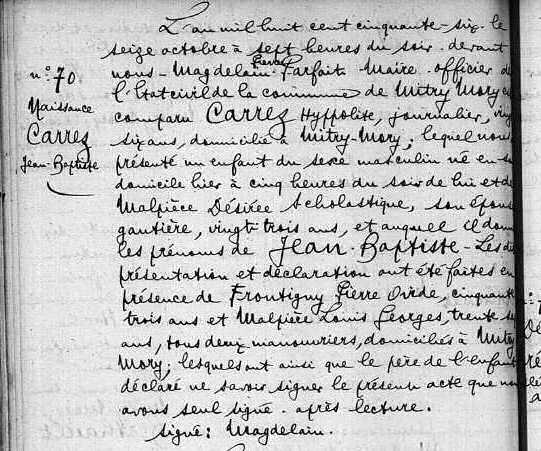 L'an mil huit cent cinquante-six le
seize octobre à sept heures du soir devant
nous Magdelain Pierre Parfait Maire officier de
l'Etat civil de la commune de Mitry Mory a
comparu Carrez Hyppolite, journalier, vingt
six ans, domicilié à Mitry-Mory, lequel nous
présenté un enfant du sexe masculin né en s
domicile hier à cinq heures du soir de lui et de
Malpièce Désirée Scholastique, son épous
gautière, vingt trois ans, et auquel il donn
les prénoms de Jean-Baptiste - Les d
présentation et déclaration ont été faites en
présence de Frontigny Pierre Ovide, cinquante
trois ans et Malpièce Louis Georges, trente s
ans, tous deux manouvriers, domiciliés à Mitry
Mory; lesquels ont ainsi que le père de l'enfant
déclaré ne savoir signer le présent acte que n
avons seul signé. après lecture.
Signé: Magdelain.
n° 70
Naissance
Carrez
Jean-Baptiste